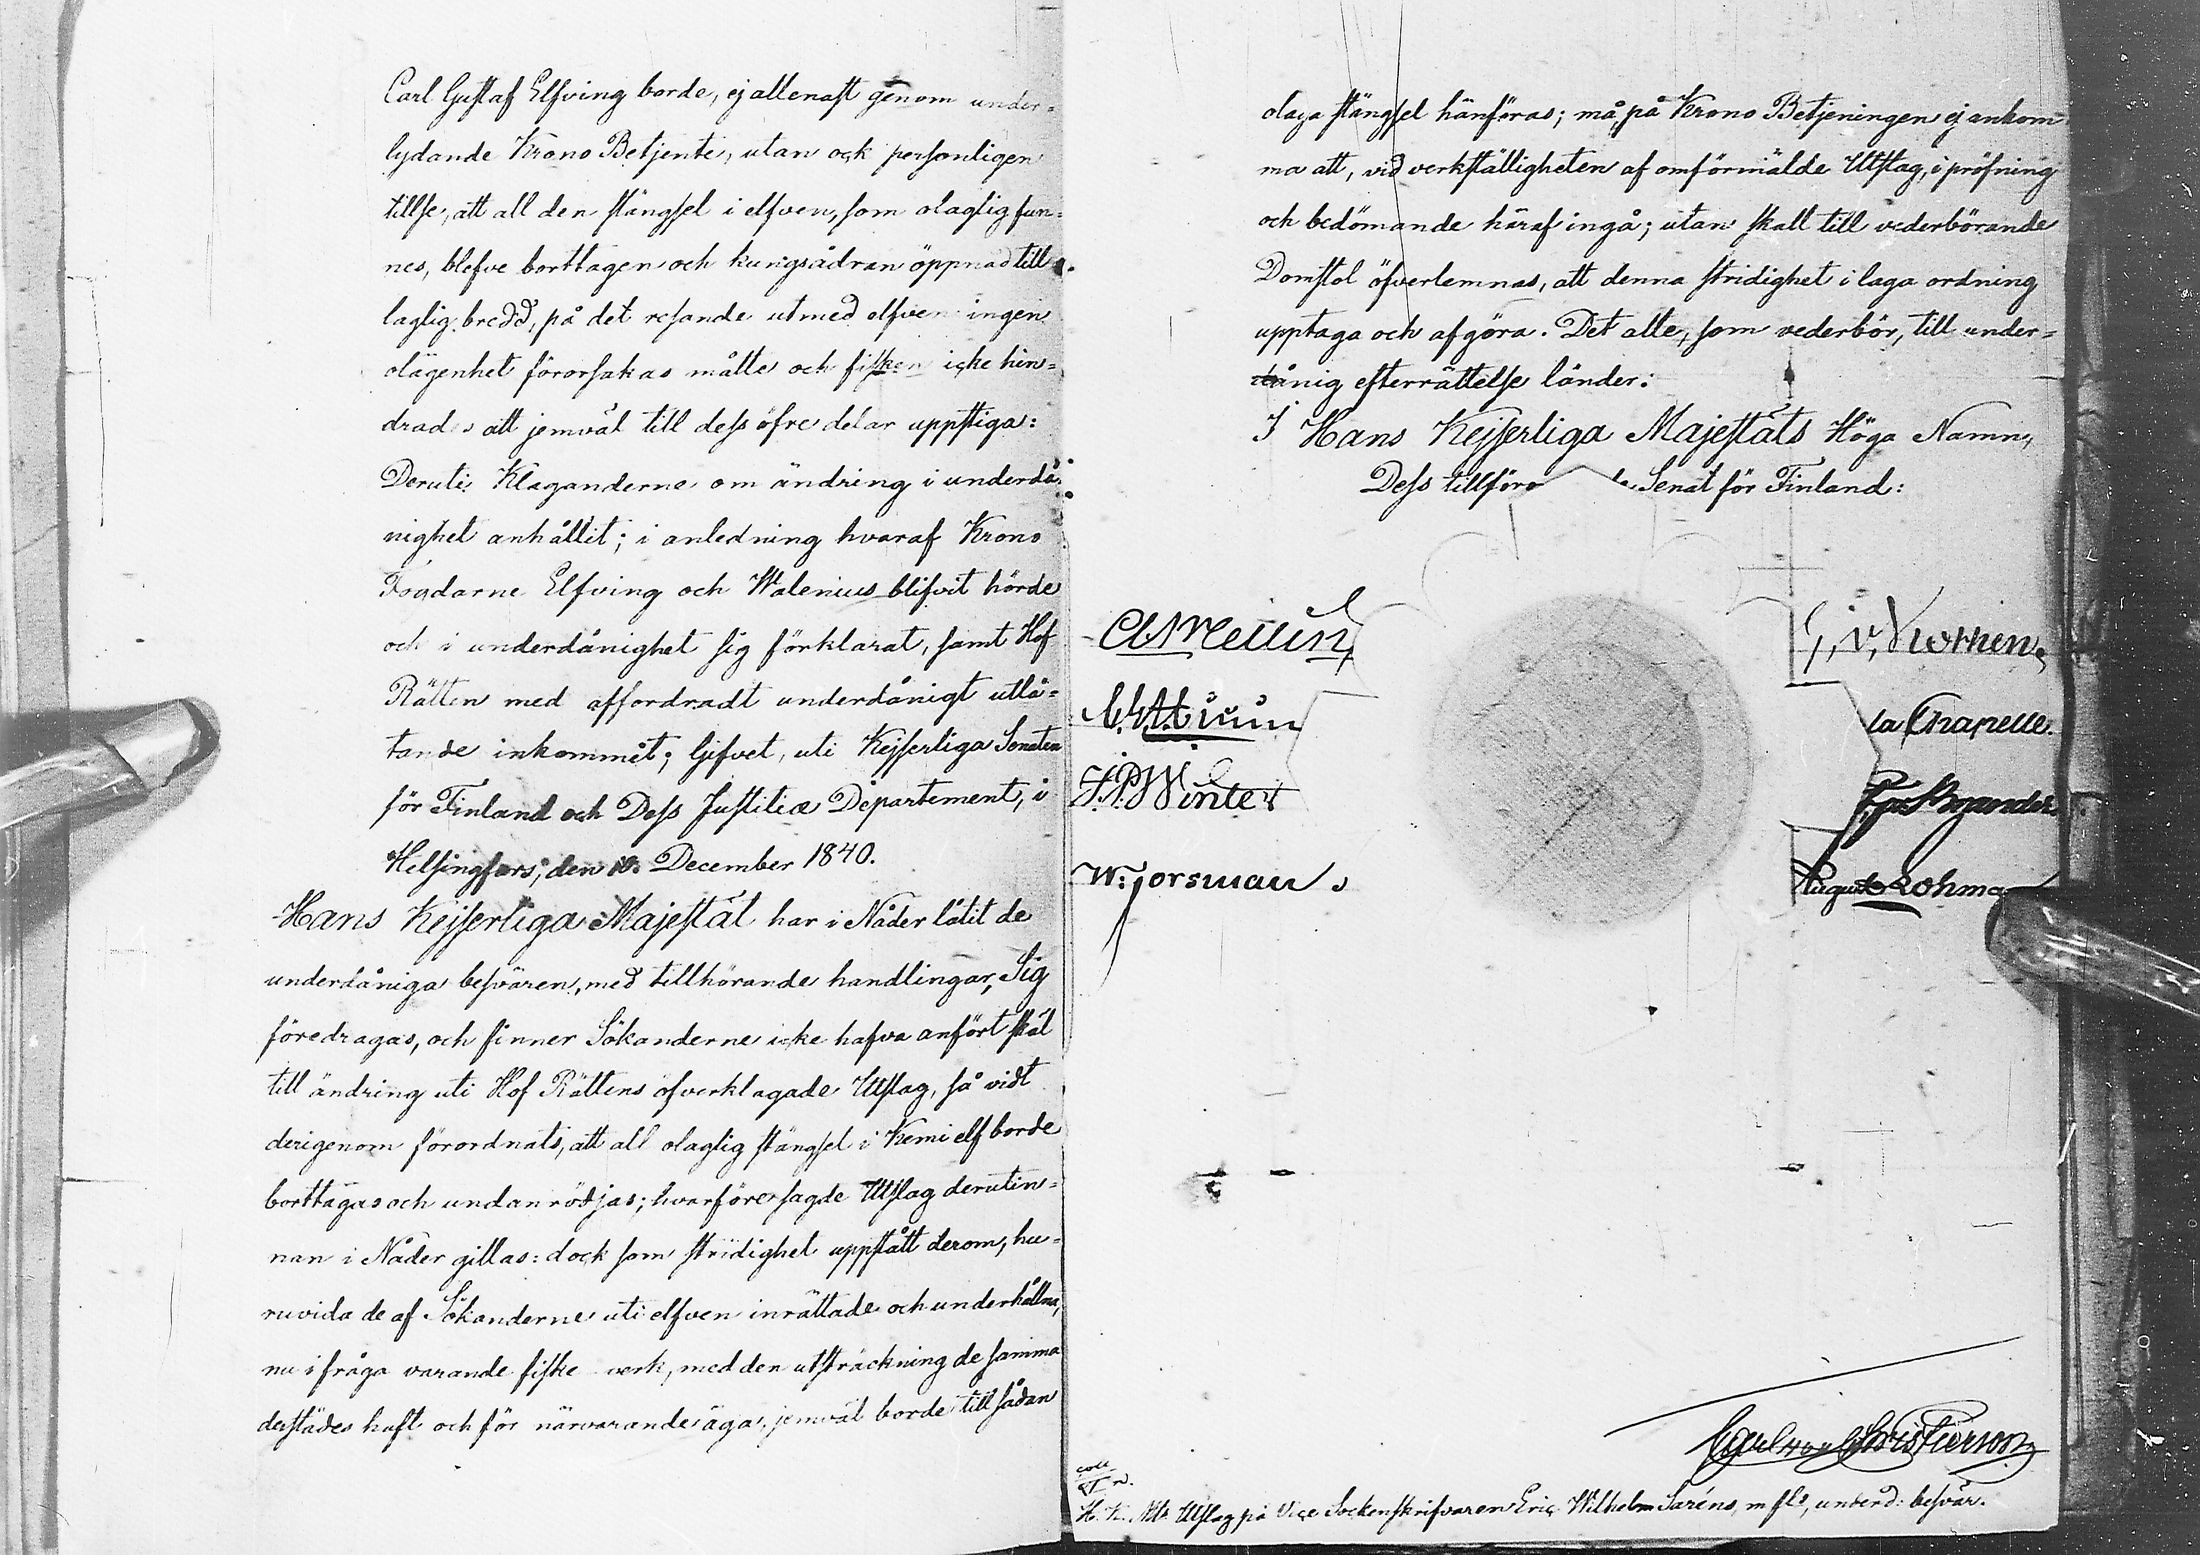 Carl Gustaf Elfving borde, ej allenast genom under=
lydande Krono Betjente, utan ock personligen
tillse, att all den stängsel i elfven, som olaglig fun=
nes, blefve borttagen och kungsådran öppnad till
laglig bredd, på det resande utmed elfven ingen
olägenhet förorsakas måtte och fisken icke hin=
drades att jemväl till dess öfre delar uppstiga:
Deruti Klaganderne om ändring i underdå=
nighet anhållit; i anledning hvaraf Krono
Fogdarne Elfving och Walenius blifvit hörde
och i underdånighet sig förklarat, samt Hof
Rätten med affordradt underdånigt utlå=
tande inkommit; Gifvet, uti Kejserliga Senaten
för Finland och Dess Justitiæ Departement, i
Helsingfors, den December 1840.
Hans Kejserliga Majestät har i Nåder låtit de
underdåniga besvären, med tillhörande handlingar, Sig
föredragas, och finner Sökanderne icke hafva anfört skäl
till ändring uti Hof Rättens öfverklagade Utslag, så vidt
derigenom förordnats, att all olaglig stängsel i Kemi elf borde
borttagas och undanrödjas; hvarföre sagde Utslag derutin=
nan i Nåder gillas: dock som stridighet uppstått derom, hu=
ruvida de af Sökanderne uti elfven inrättade och underhållna,
nu i fråga varande fiske verk, med den utsträckning de samma
derstädes haft och för närvarande äga, jemväl borde till sådan
olaga stängsel hänföras; må, på Krono Betjeningen ej ankom
ma att, vid verkställigheten af omförmälde Utslag, i pröfning
och bedömande häraf ingå; utan skall till vederbörande
Domstol öfverlemnas, att denna stridighet i laga ordning
upptaga och afgöra. Det alle, som vederbör, till under=
dånig efterrättelse länder.
I Hans Kejserliga Majestäts Höga Namn,
Dess tillföro de Senat för Finland:
la Chapelle.
J.P. Winter
W: Forsman
Carl von Christierson
coll
H. K. M:ts Utslag på Vice Sockenskrifvaren Eric Wilhelm Saréns, m fls, underd: besvär.